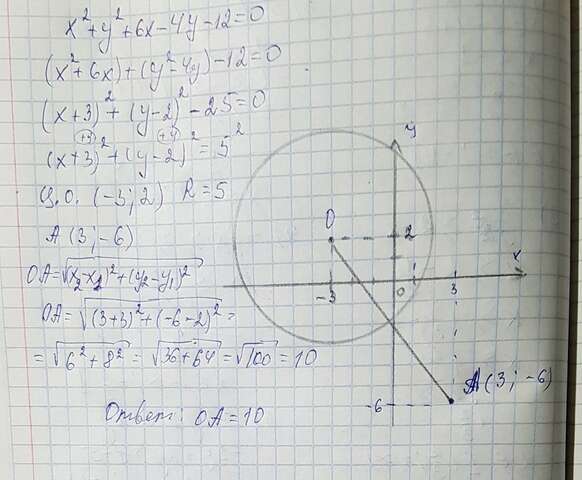 x²+y²+6x-4y-12=0
(x²+6x)+(y²-4y)-12=0
(x+3)²+(y-2)²-25=0
+9 +4
(x+3)²+(y-2)²=5²
Ц.О. (-3; 2) R=5
A (3; -6)
OA=√(x₂-x₁)²+(y₂-y₁)²
OA=√(3+3)²+(-6-2)² =
=√6²+8² =√36+64=√100=10
Ответ: OA=10
y
O
2
x
-3
0
1
3
A(3; -6)
-6